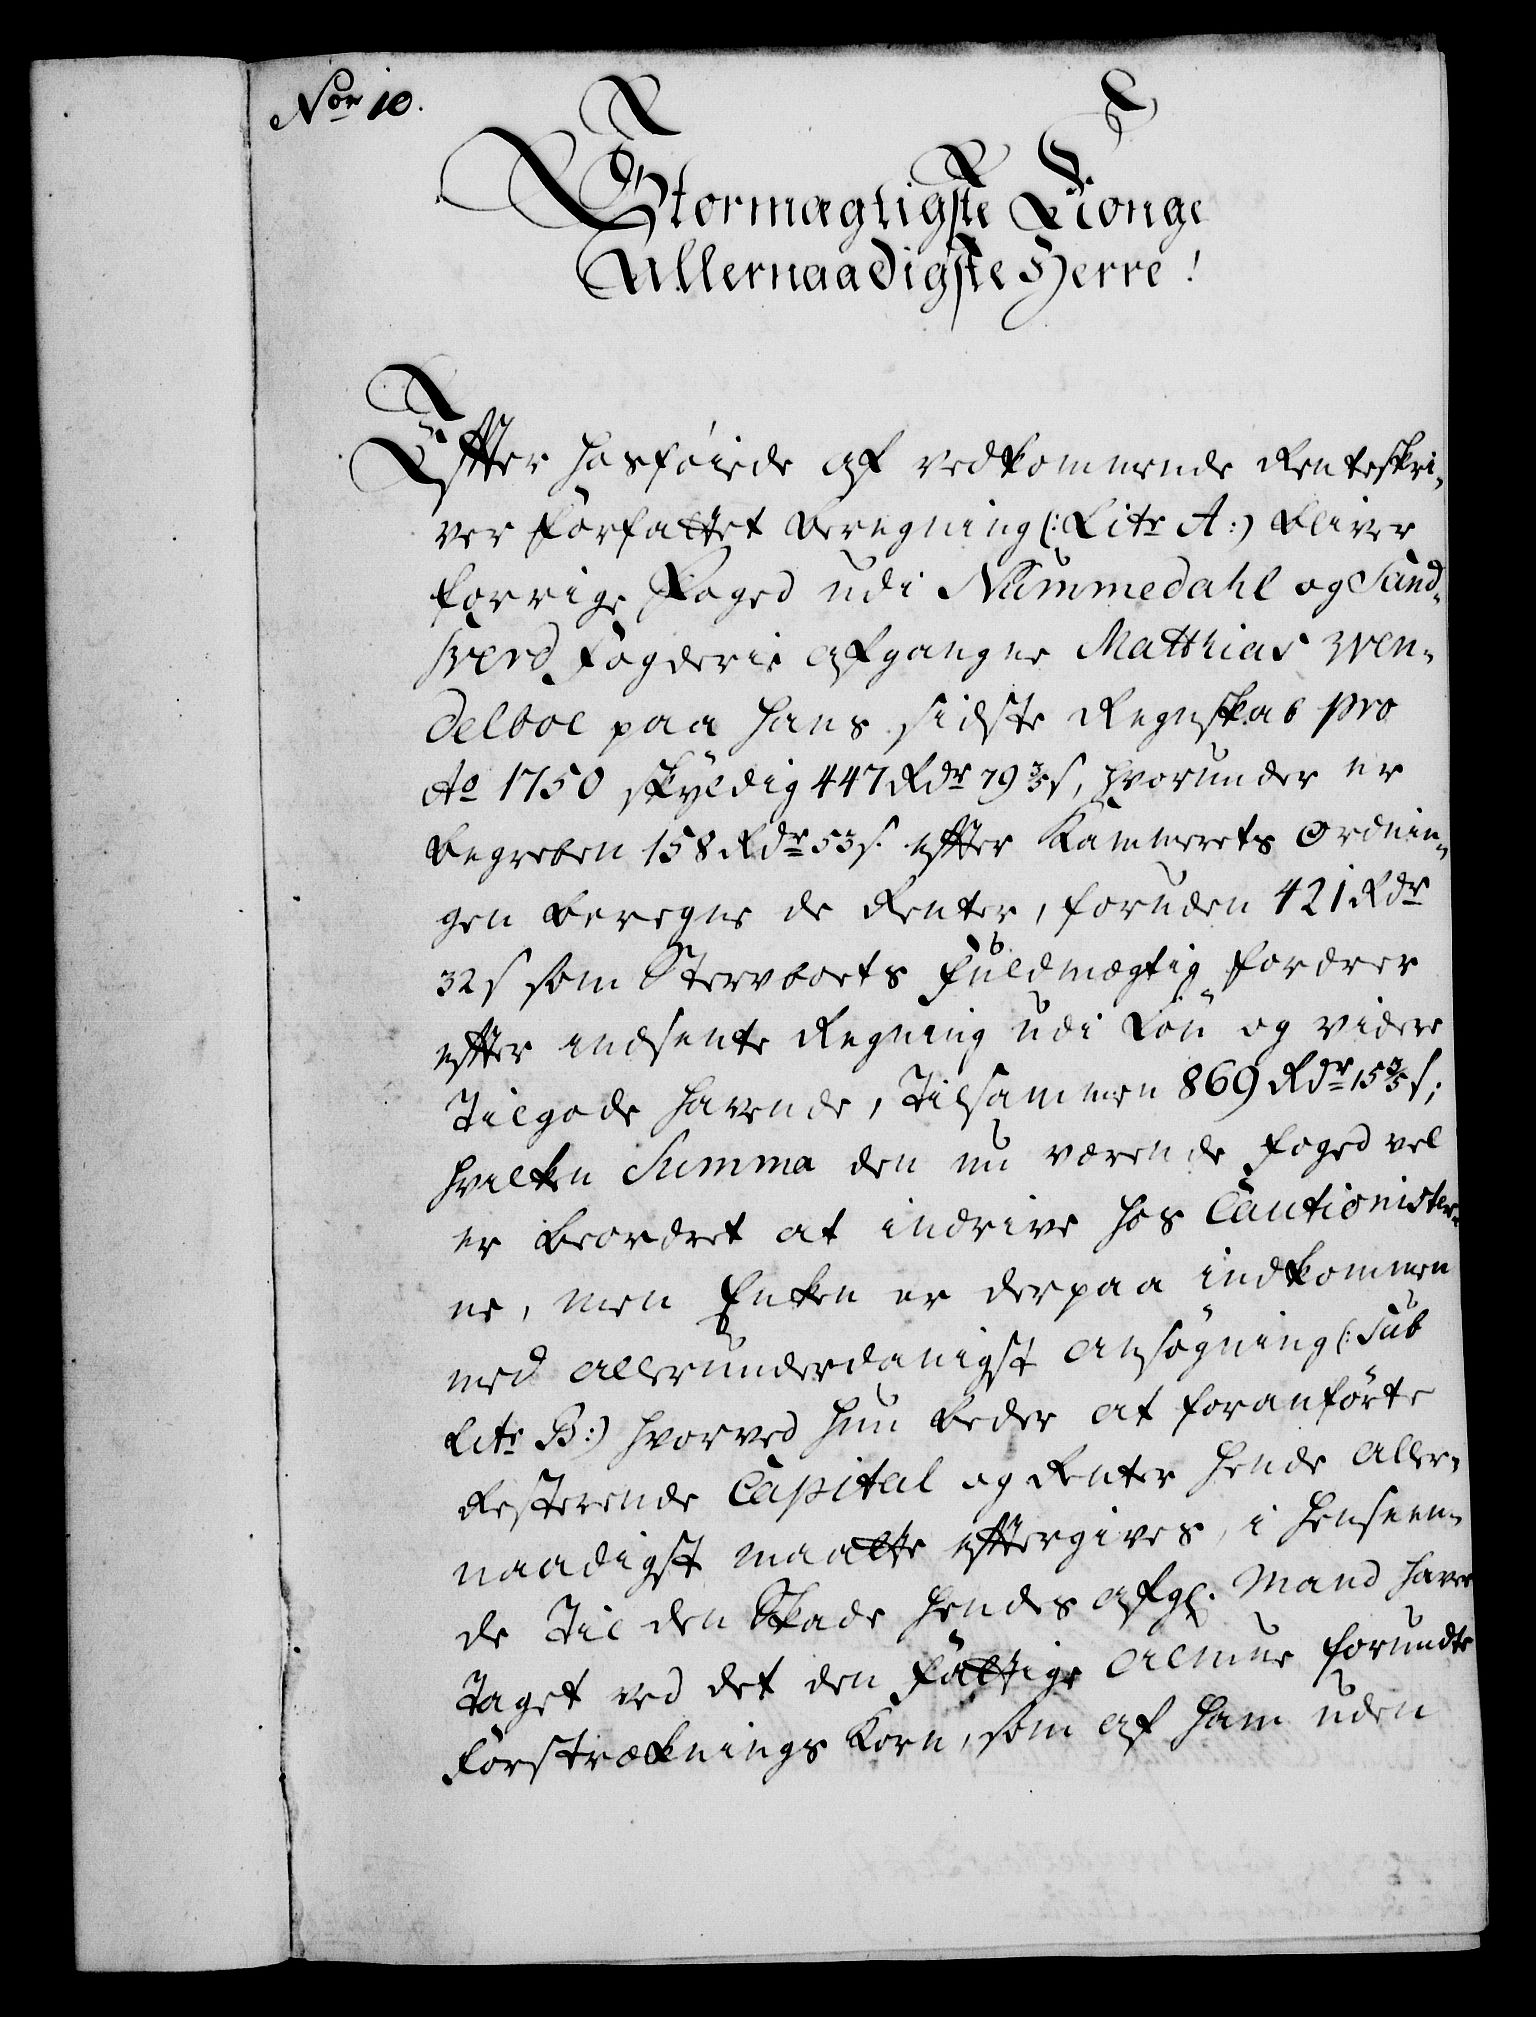 No 10.
Stormægtigste Konge
Allernaadigste Herre!
Effter hosføiede af vedkommende Renteskri-
ver forfattet Beregning (: Litr A:) bliver
forrige Foged udi Nummedahl og Sand-
sverd Fogderie afgangne Matthias Wen-
delboe paa hans sidste Regnskab pro
Ao 1750 skyldig 447 Rdr 79 3/5 s, hvorunder er
begreben 158 Rdr 53 s. effter Kammerets Ordnin-
gen beregnede Renter, foruden 421 Rdr
32 s som Stervboets Fuldmægtig fordrer
effter indsente Regning udi Løn og videre
Tilgode havende, Tilsammen 869 Rdr 15 3/5 s;
hvilken Summa den nu værende Foged vel
er beordret at indrive hos Cautionister-
ne, men Enken er derpaa indkommen
med allerunderdanigst Ansøgning (: Sub
Litr B:) hvorved hun beder at foranførte
Resterende Capital og Renter hende aller-
naadigst maatte efftergives, i henseen-
de Til den Skade hendes afg. Mand haver
Taget ved det den fattige Almue forundte
Forstræknings Korn, som af ham uden